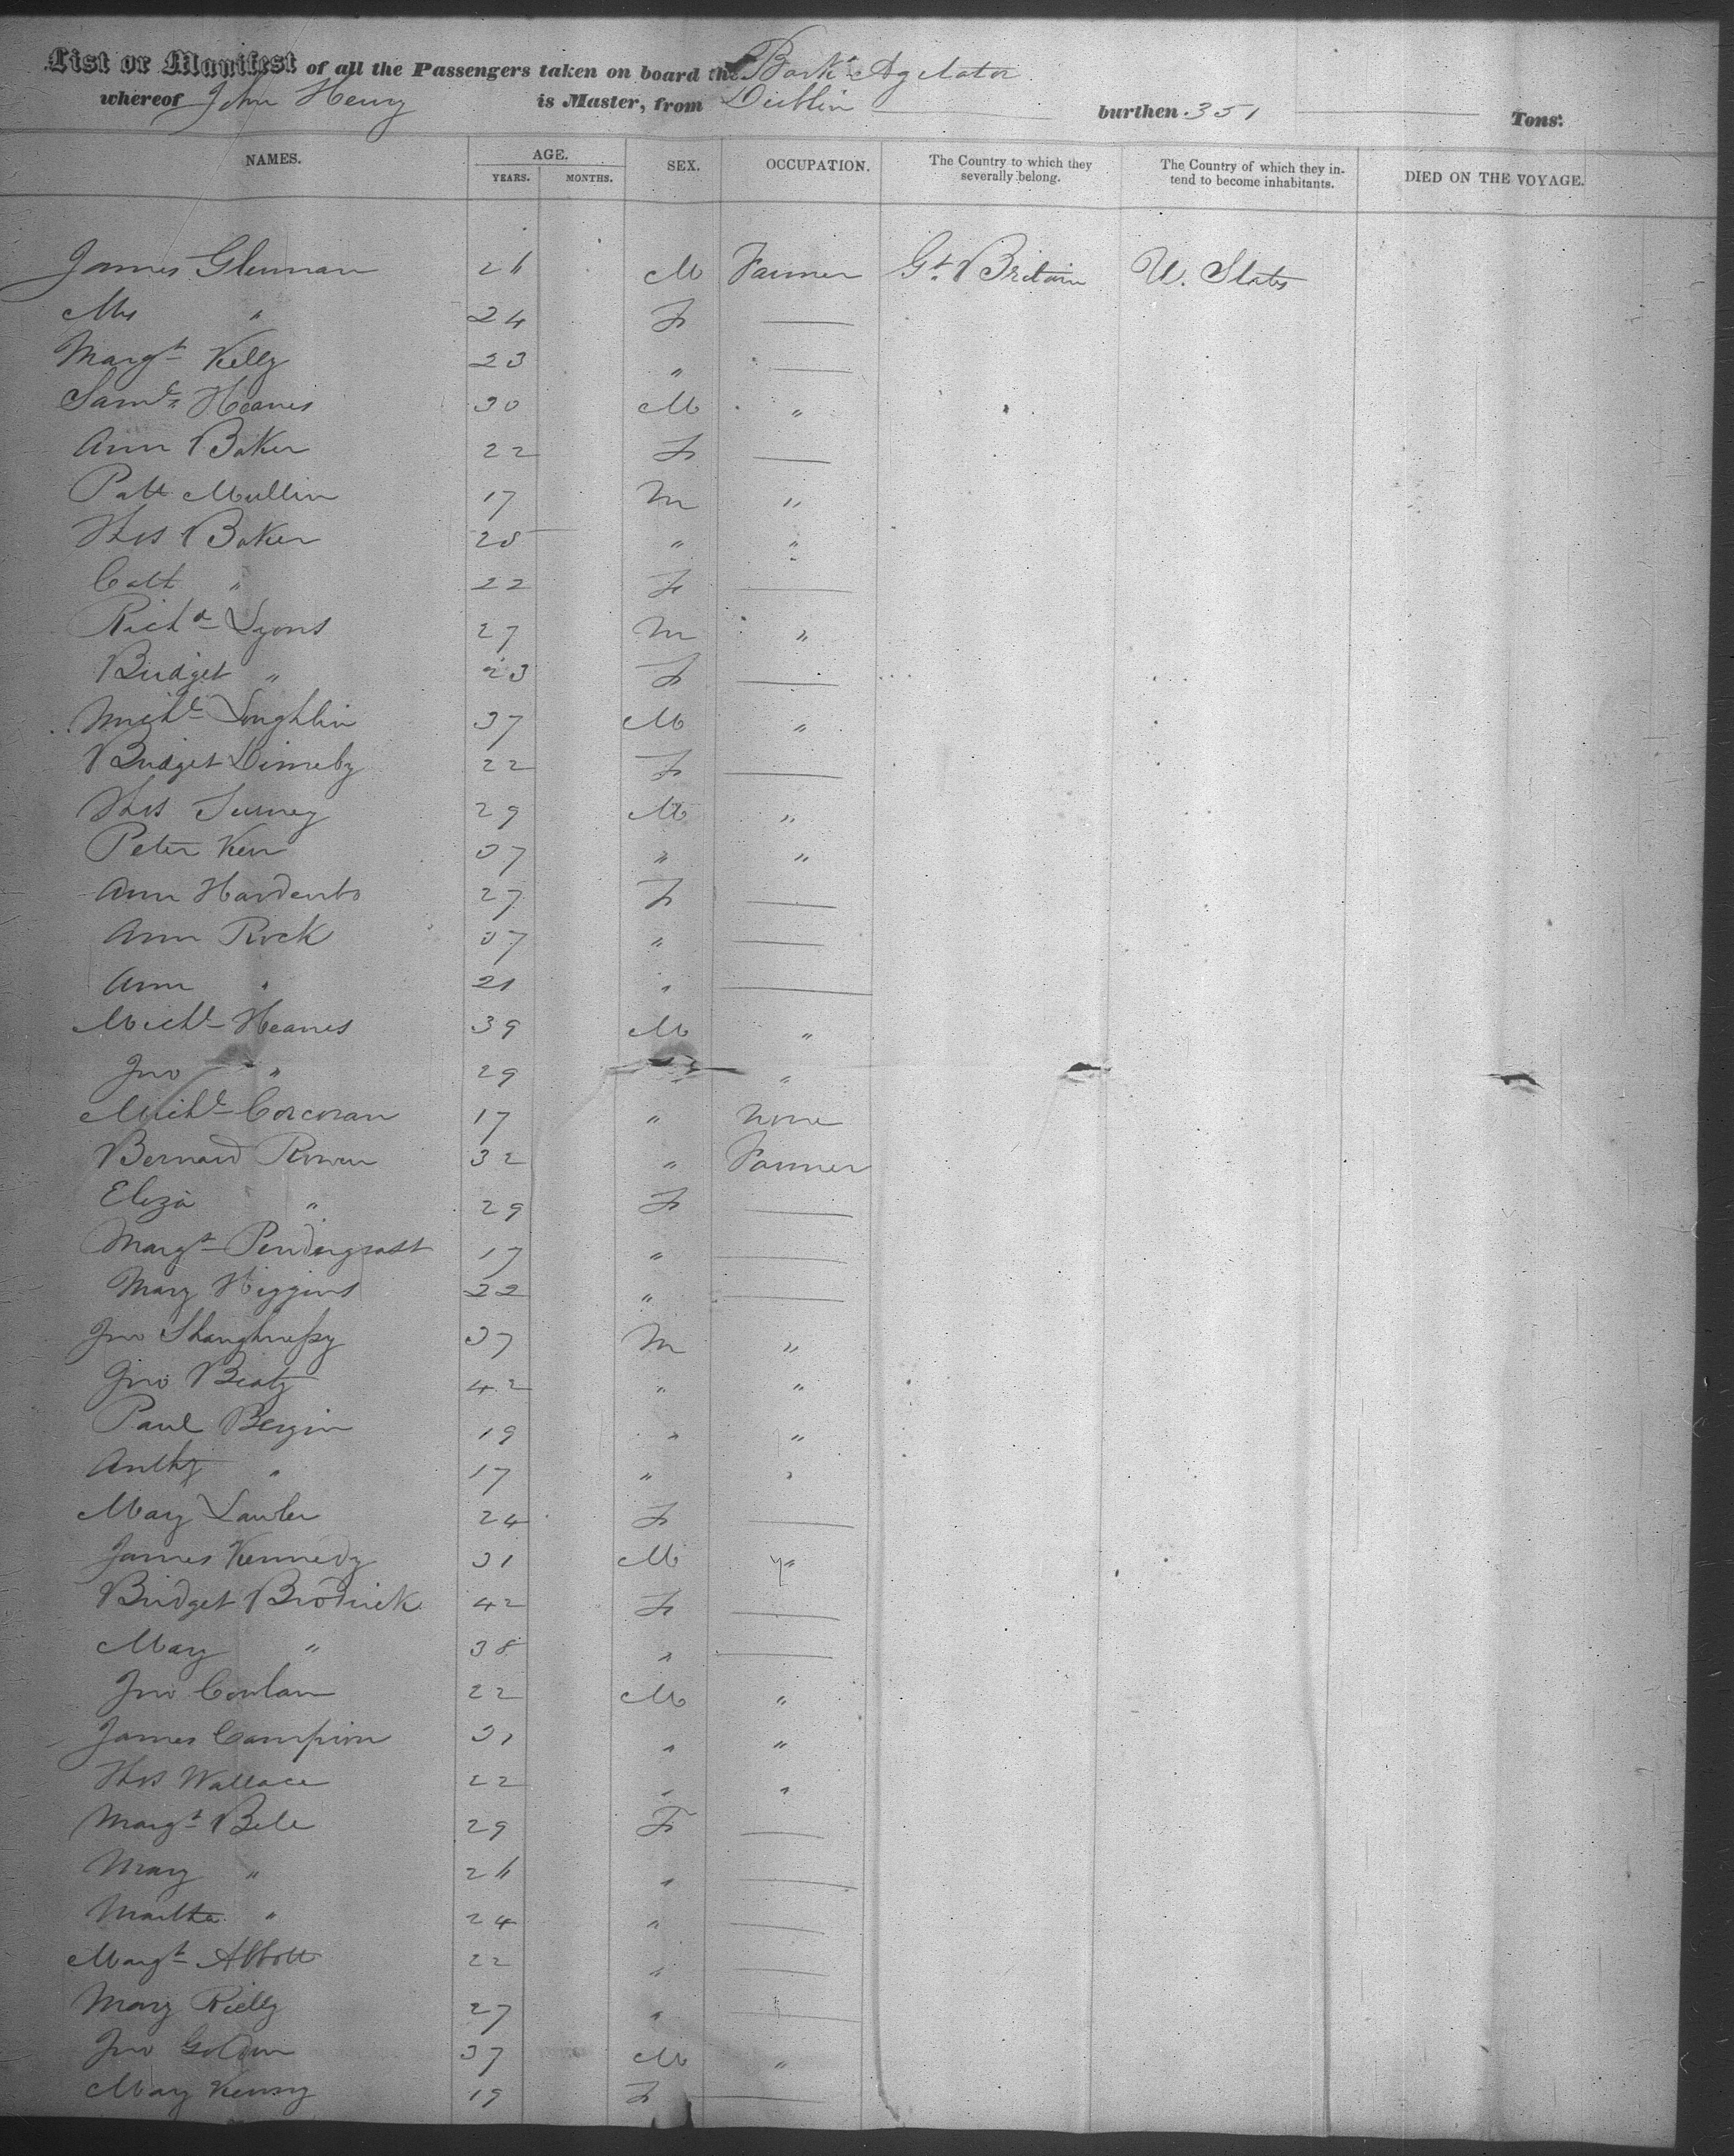 List or Manifest of all the Passengers taken on board the Bark Agitator
whereof John Henry is Master, from Dublin burthen 351 Tons.
NAMES. AGE. YEARS. MONTHS. SEX. OCCUPATION. The Country to which they severally belong. The Country of which they intend to become inhabitants. DIED ON THE VOYAGE.
James Glennan 26 M Farmer Gt. Britain U. States
Mrs " 24 F —
Margt Kelly 23 " —
Saml Heanes 30 M "
Ann Baker 22 F —
Patt Mullin 17 M "
Thos Baker 25 " "
Cath " 22 F —
Richd Lyons 27 M "
Bridget " 23 F —
Michl Loughlin 37 M "
Bridget 22 F —
Thos 29 M "
Peter Kerr 37 " "
Ann 27 F —
Ann Rock 37 " —
Ann " 21 " —
Michl Heanes 39 M "
Jno " 29 "
Michl Corcoran 17 " None
Bernard Rowan 32 " Farmer
Eliza " 29 F —
Margt Pendergrast 17 " —
Mary Higgins 22 " —
Jno Shaughnessy 37 M "
Jno Beaty 42 " "
Paul Bergin 19 " "
Anthy " 17 " "
Mary Lawler 24 F —
James Kennedy 31 M "
Bridget Brodrick 42 F —
Mary " 38 " —
Jno Conlan 22 M "
James Campion 31 " "
Thos Wallace 22 " "
Margt Bele 29 F —
Mary " 26 " —
Martha " 24 " —
Margt Abbott 22 " —
Mary Rielly 27 " —
Jno 37 M "
Mary 19 F —